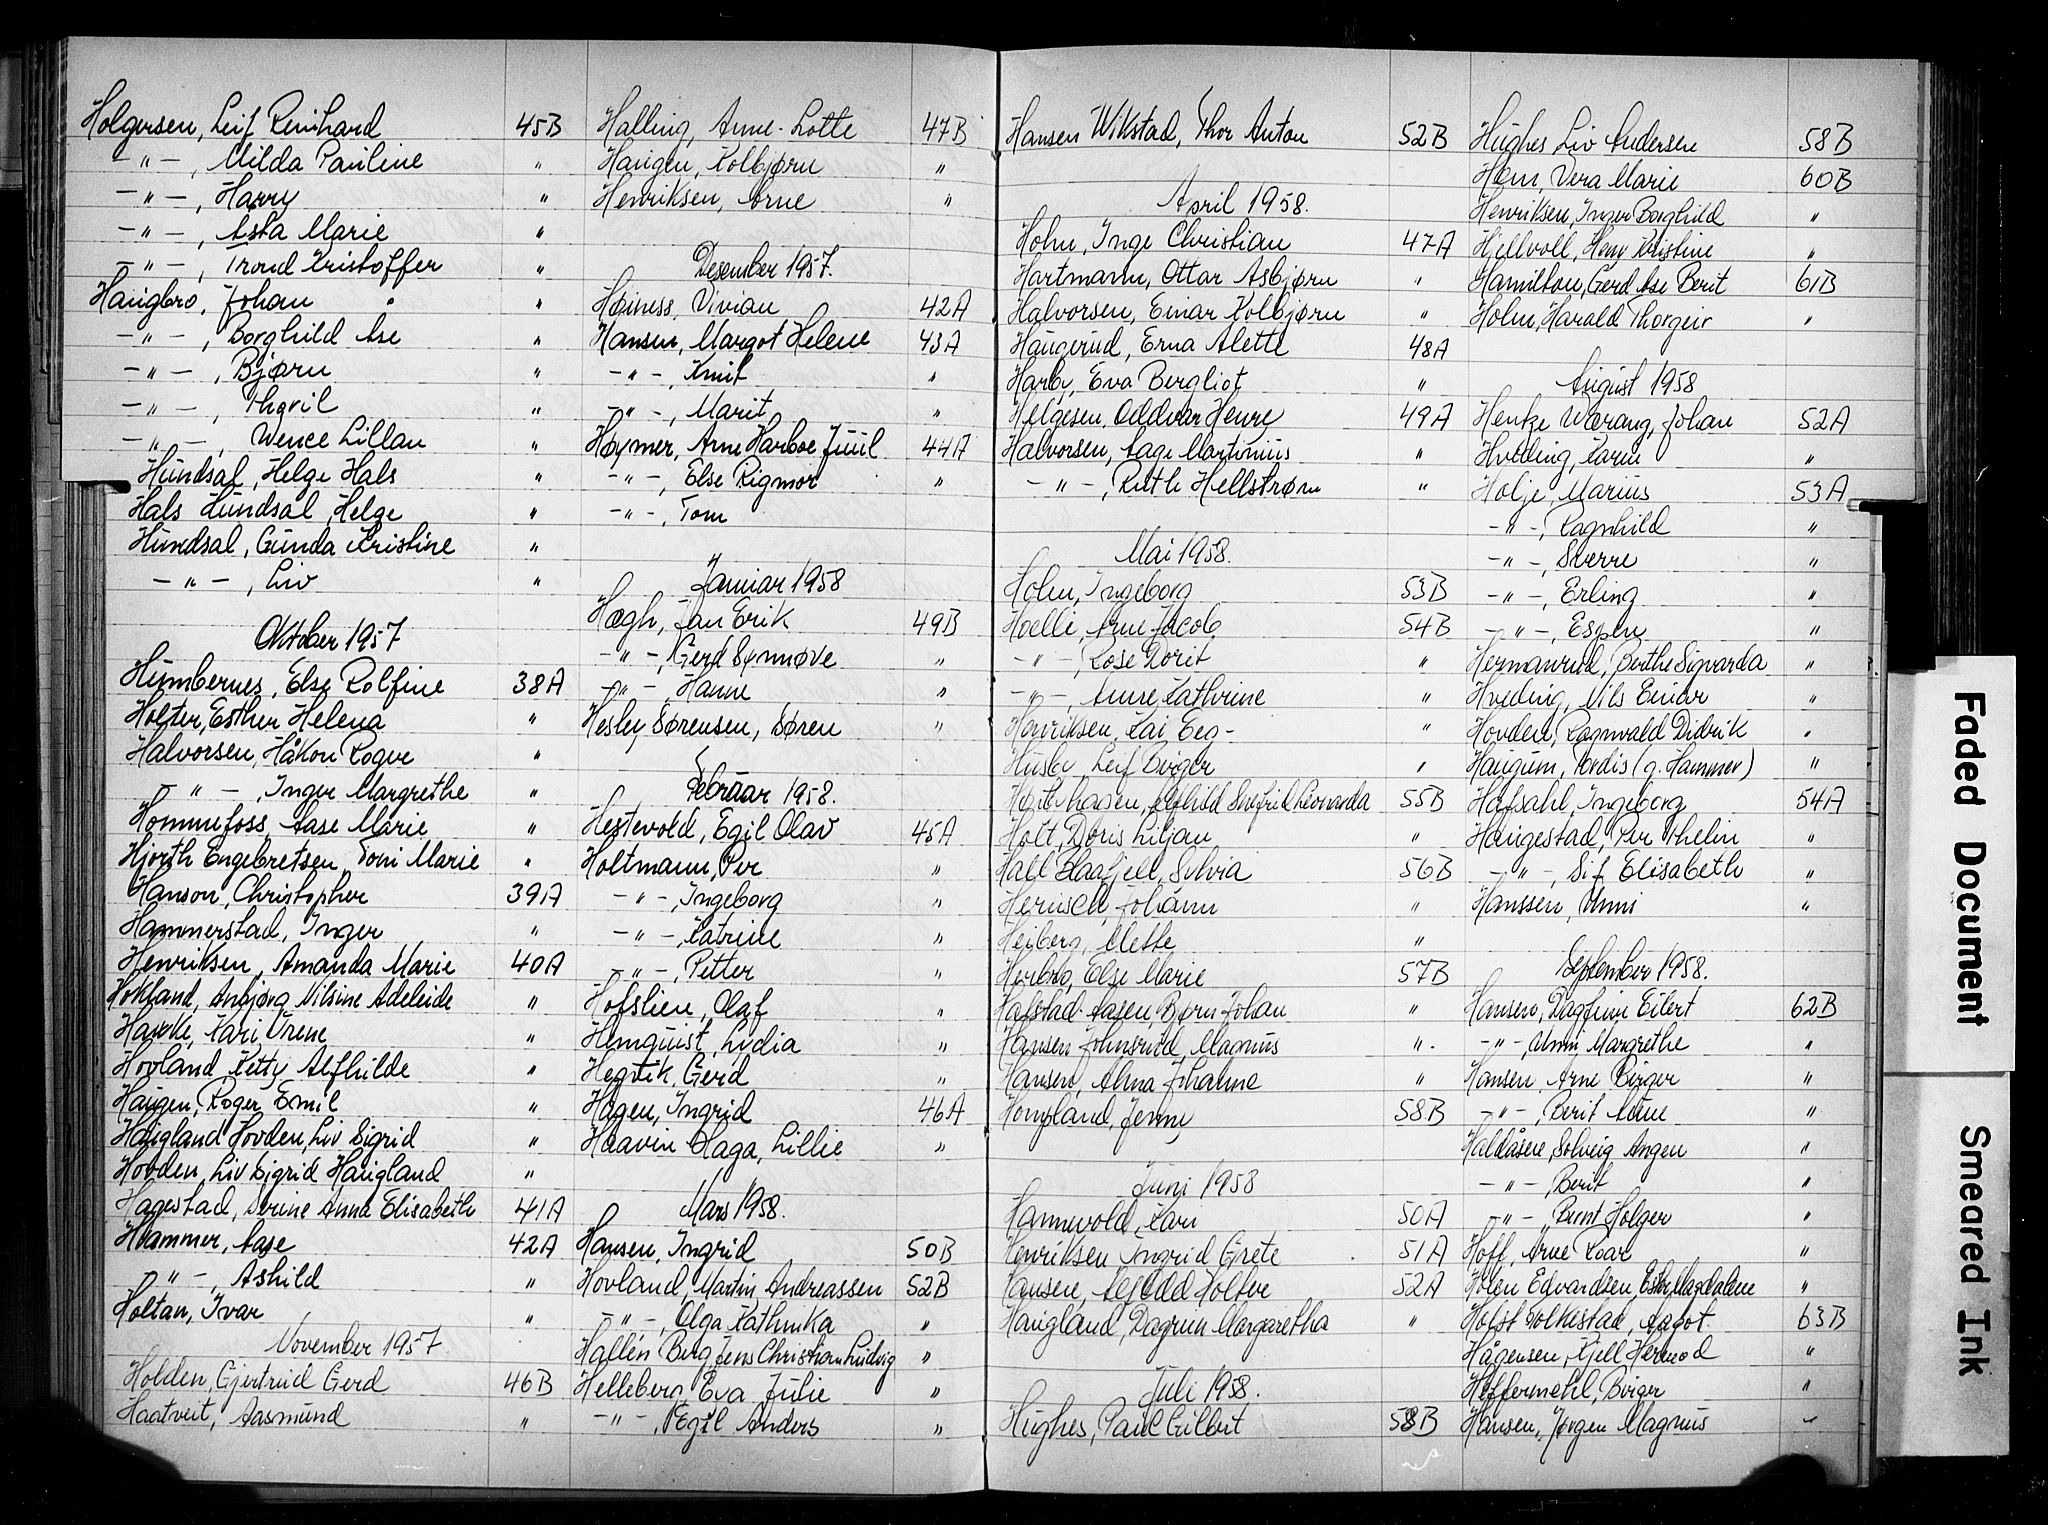 Holgersen, Leif Reinhard 45B
-"-, Milda Pauline "
-"-, Harry "
-"-, Asta Marie "
-"-, Trond Kristoffer "
Haugbro, Johan "
-"-, Borghild Åse "
-"-, Bjørn "
-"-, Thoril "
-"-, Wence Lillan "
Hundsal, Helge Hals "
Hals Hundsal, Helge "
Hundsal, Gunda Kristine "
-"-, Liv "
Oktober 1957
Humbernes, Else Rolfine 38A
Holter, Esther Helena "
Halvorsen, Håkon Roger "
-"-, Inger Margrethe "
Hommefoss, Aase Marie "
Hjorth Engebretsen, Toni Marie "
Hanson, Christopher 39A
Hammerstad, Inger "
Henriksen, Amanda Marie 40A
Hokland, Anbjørg Nilsine Adeleide "
Hauke, Kari Irene "
Hovland, Ketty Alfhilde "
Haugen, Roger Emil "
Haugland Hovden, Liv Sigrid "
Hovden, Liv Sigrid Haugland "
Hagestad, Serine Anna Elisabeth 41A
Hvammer, Aase 42A
-"-, Ashild "
Holtan, Ivar "
November 1957
Holden, Gjertrud Gerd 46B
Haatveit, Aasmund "
Halling, Anne-Lotte 47B
Haugen, Kolbjørn "
Henriksen, Arne "
Desember 1957.
Høiness, Vivian 42A
Hansen, Margot Helene 43A
-"-, Knut "
-"-, Marit "
Høymer, Arne Harboe Juul 44A
-"-, Else Rigmor "
-"-, Tom
Januar 1958
Høegh, Jan Erik 49B
-"-, Gerd Synnøve "
-"-, Hanne "
Hesby Sørensen, Søren "
Februar 1958.
Hestevold, Egil Olav 45A
Holtmann, Per "
-"-, Ingeborg "
-"-, Katrine "
-"-, Petter "
Hofslien, Olaf "
Hemquist, Lydia "
Hegvik, Gerd "
Hagen, Ingrid 46A
Haavin Haga, Lillie "
Mars 1958.
Hansen, Ingrid 50B
Hovland, Martin Andreassen 52B
-"-, Olga Kathinka "
Hallén Berg, Jens Christian Ludvig "
Helleberg, Eva Julie "
-"-, Egil Anders "
Hansen Wikstad, Thor Anton 52B
April 1958.
Holm, Inge Christian 47A
Hartmann, Ottar Asbjørn "
Halvorsen, Einar Kolbjørn "
Haugerud, Erna Alette 48A
Harby, Eva Bergliot "
Helgesen, Oddvar Henre 49A
Halvorsen, Aage Martinius "
-"-, Ruth Hellstrøm "
Mai 1958.
Holm, Ingeborg 53B
Hoelli, Arne Jacob 54B
-"-, Rose Dorit "
-"-, Anne Kathrine "
Henriksen, Kai Eeg- "
Husby, Leif Birger "
Alfhild Snefrid Leonarda 55B
Holt, Doris Liljan "
Hall Blaafjell, Sylvia 56B
Johann "
Heiberg, Mette "
Herbro, Else Marie 57B
Halstad-Aasen, Bjørn Johan "
Hansen Johnsrud, Magnus "
Hansen, Alma Johanne "
Jenny 58B
Juni 1958
Hannevold, Kari 50A
Henriksen, Ingrid Grete 51A
Hansen, Alf Odd Holter 52A
Haugland, Dagrun Margaretha "
Juli 1958.
Hughes, Paul Gilbert 58B
Hughes Liv Andersen 58B
Hem, Vera Marie 60B
Henriksen, Inger Borghild "
Hellvoll, Kristine "
Hamilton, Gerd Åse Berit 61B
Holm, Harald Thorgeir "
August 1958
Henke Wærang, Johan 52A
Hveding, Karin "
Holje, Marius 53A
-"-, Ragnhild "
-"-, Sverre "
-"-, Erling "
-"-, Espen "
Hermanrud, Berthe Sigvarda "
Hveding, Nils Einar "
Hovden, Ragnvald Didrik "
Haugum, Tordis (g. Hammer) "
Hafsahl, Ingeborg 54A
Haugestad, Per Thelin "
-"-, Sif Elisabeth "
Hanssen, Unni "
September 1958.
Hansen, Dagfinn Eilert 62B
-"-, Unni Margrethe "
Hansen, Arne Birger "
-"-, Berit Aase "
Haldåsen, Solveig Angen "
-"-, Berit "
-"-, Bernt Holger "
Hoff, Arne Roar "
Holen Edvardsen, Ester Magdalene "
Holst Folkestad, Aagot 63B
Hågensen, Kjell Hermod "
Heffermehl, Birger "
Hansen, Jørgen Magnus "
Faded Document
Smeared Ink